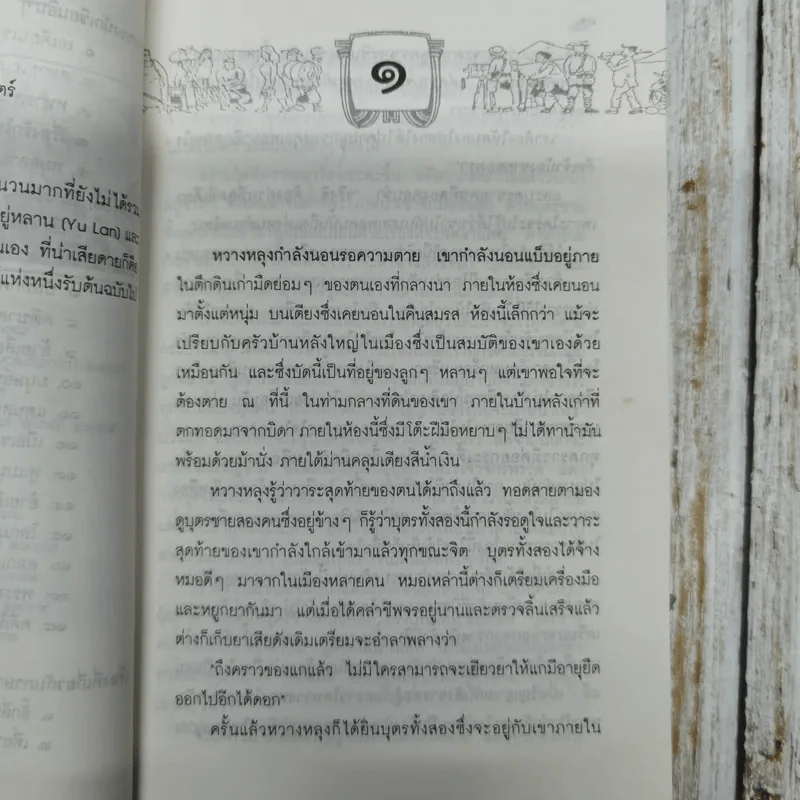 ตร์
นวนมากที่ยังไม่ได้รวม
ยู่หลาน (Yu Lan) และ
นเอง ที่น่าเสียดายก็คือ
แห่งหนึ่งรับต้นฉบับไป
๑
หวางหลุงกำลังนอนรอความตาย เขากำลังนอนแบ็บอยู่ภาย
ในตึกดินเก่ามืดย่อมๆ ของตนเองที่กลางนา ภายในห้องซึ่งเคยนอน
มาตั้งแต่หนุ่ม บนเตียงซึ่งเคยนอนในคืนสมรส ห้องนี้เล็กกว่า แม้จะ
เปรียบกับครัวบ้านหลังใหญ่ในเมืองซึ่งเป็นสมบัติของเขาเองด้วย
เหมือนกัน และซึ่งบัดนี้เป็นที่อยู่ของลูกๆ หลานๆ แต่เขาพอใจที่จะ
ต้องตาย ณ ที่นี้ ในท่ามกลางที่ดินของเขา ภายในบ้านหลังเก่าที่
ตกทอดมาจากบิดา ภายในห้องนี้ซึ่งมีโต๊ะฝีมือหยาบๆ ไม่ได้ทาน้ำมัน
พร้อมด้วยม้านั่ง ภายใต้ม่านคลุมเตียงสีน้ำเงิน
หวางหลุงรู้ว่าวาระสุดท้ายของตนได้มาถึงแล้ว ทอดสายตามอง
ดูบุตรชายสองคนซึ่งอยู่ข้างๆ ก็รู้ว่าบุตรทั้งสองนี้กำลังรอดูใจและวาระ
สุดท้ายของเขากำลังใกล้เข้ามาแล้วทุกขณะจิต บุตรทั้งสองได้จ้าง
หมอดีๆ มาจากในเมืองหลายคน หมอเหล่านี้ต่างก็เตรียมเครื่องมือ
และหยูกยากันมา แต่เมื่อได้คลำชีพจรอยู่นานและตรวจลิ้นเสร็จแล้ว
ต่างก็เก็บยาเสียดังเดิมเตรียมจะอำลาพลางว่า
"ถึงคราวของแกแล้ว ไม่มีใครสามารถจะเยียวยาให้แกมีอายุยืด
ออกไปอีกได้ดอก"
ครั้นแล้วหวางหลุงก็ได้ยินบุตรทั้งสองซึ่งจะอยู่กับเขาภายใน